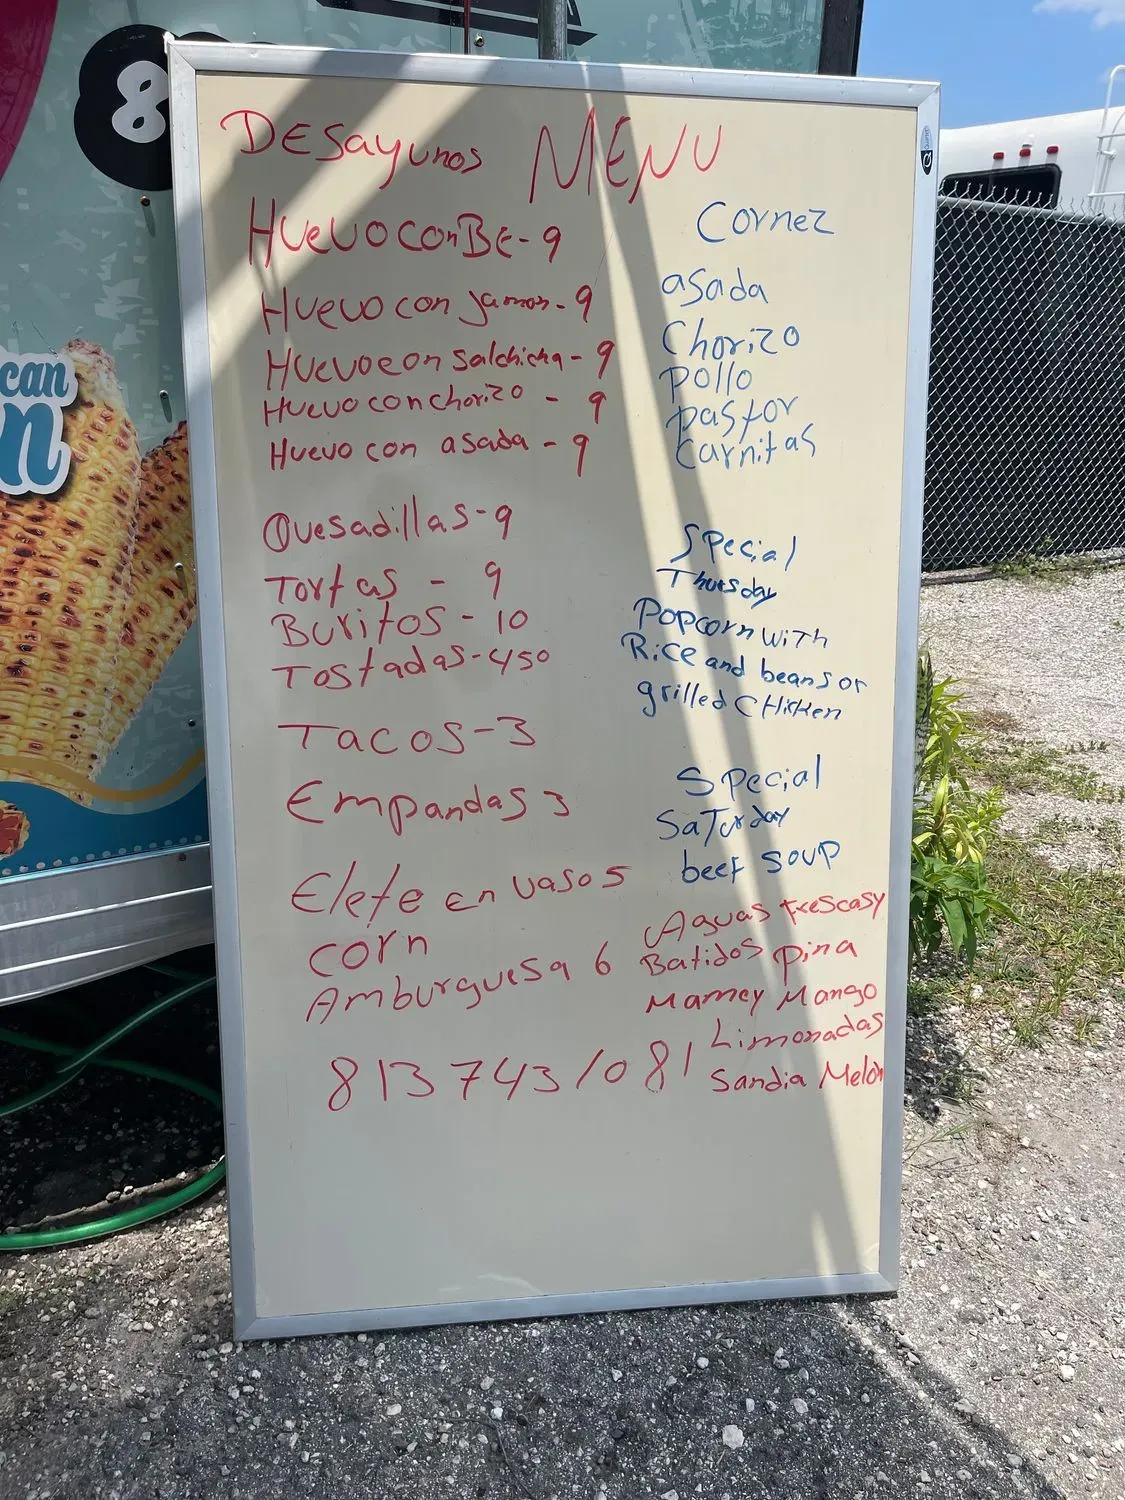 8
can
n
DESayunos MENU
HUEVO con BE-9
HUEVO con jamon-9
HUEVO con salchicha-9
HUEVO con chorizo - 9
HUEVO con asada - 9
Quesadillas-9
Tortas - 9
Buritos - 10
Tostadas-450
Tacos-3
Empandas 3
Elete en vasos
corn
Amburguesa 6
813 743 1081
Cornez
asada
Chorizo
pollo
pastor
Carnitas
Special
Thursday
Popcorn with
Rice and beans or
grilled CHicken
Special
Saturday
beef soup
Aguas frescasy
Batidos pina
Mamey Mango
Limonadas
Sandia Melon